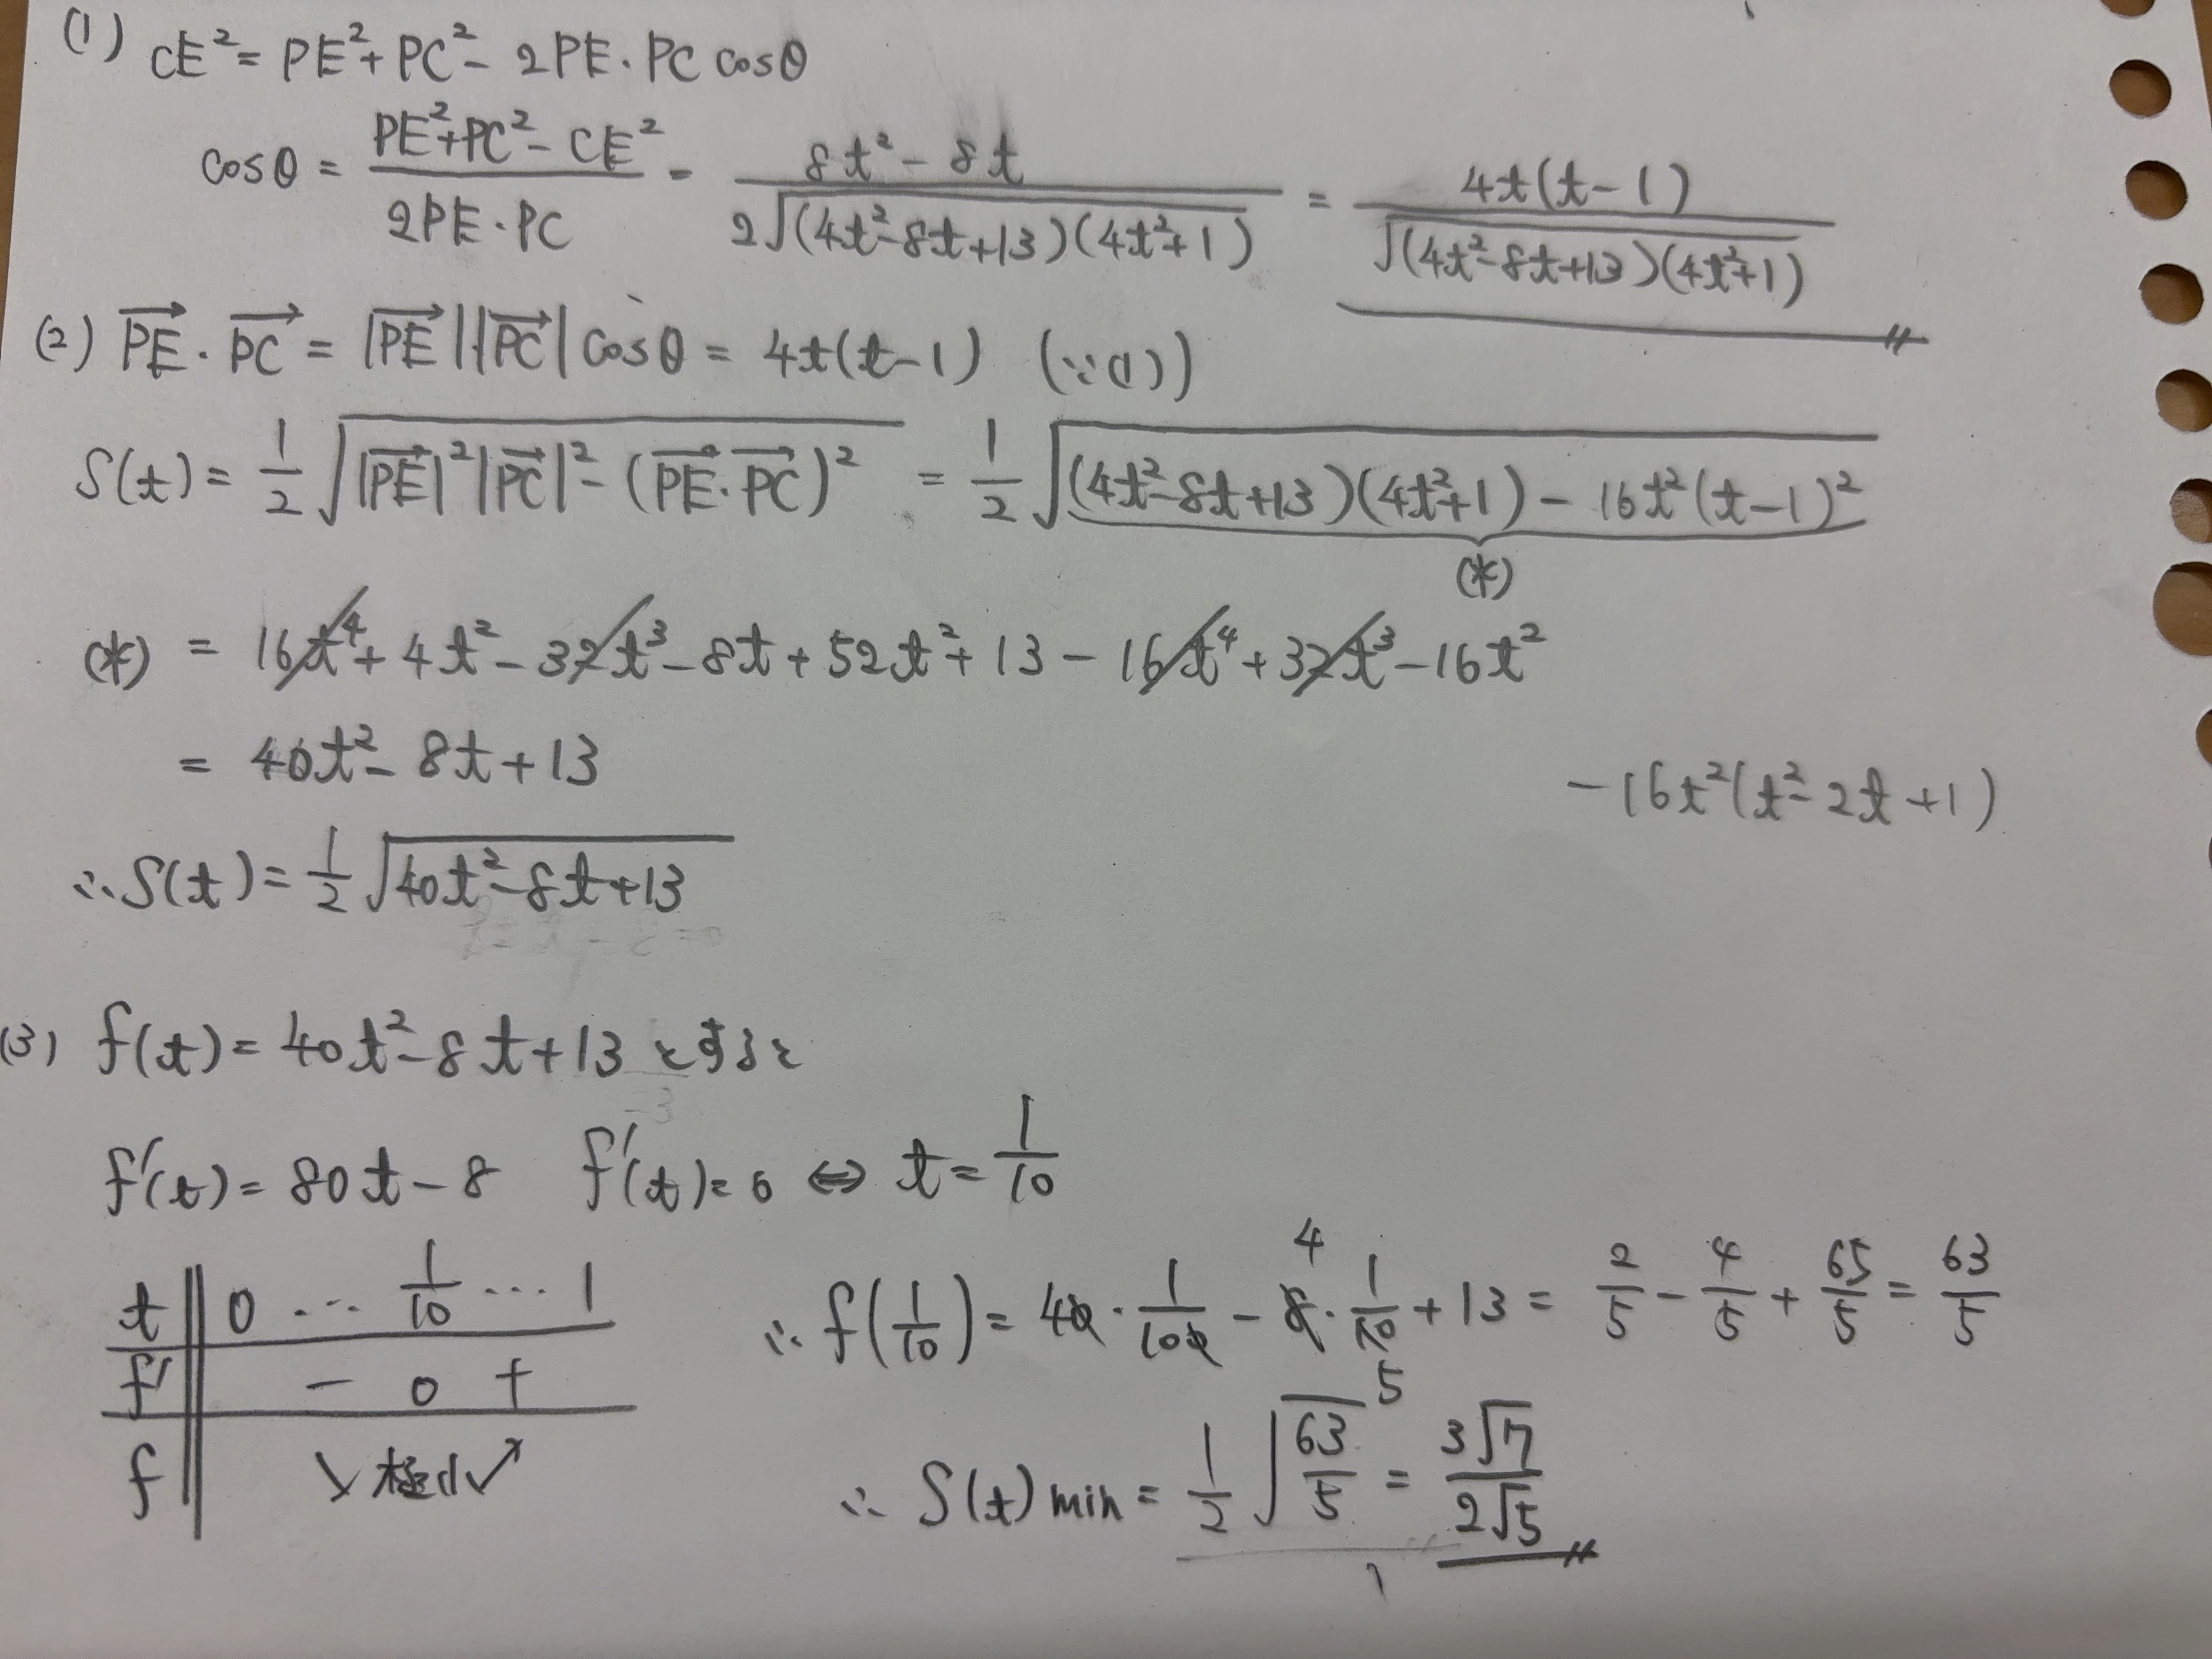 (1) CE² = PE² + PC² - 2PE・PC cosθ
cosθ = (PE² + PC² - CE²)/(2PE・PC) = (8t² - 8t)/(2√((4t² - 8t + 13)(4t² + 1))) = 4t(t - 1)/√((4t² - 8t + 13)(4t² + 1))
(2) PE→・PC→ = |PE→||PC→| cosθ = 4t(t - 1) (∵(1))
S(t) = 1/2 √(|PE→|²|PC→|² - (PE→・PC→)²) = 1/2 √((4t² - 8t + 13)(4t² + 1) - 16t²(t - 1)²)
(*)
(*) = 16t⁴ + 4t² - 32t³ - 8t + 52t² + 13 - 16t⁴ + 32t³ - 16t²
= 40t² - 8t + 13
-16t²(t² - 2t + 1)
∴ S(t) = 1/2 √(40t² - 8t + 13)
(3) f(t) = 40t² - 8t + 13 とすると
f'(t) = 80t - 8 f'(t) = 0 ⇔ t = 1/10
t 0 … 1/10 … 1
f' - 0 +
f ↘ 極小 ↗
∴ f(1/10) = 40・1/100 - 8・1/10 + 13 = 2/5 - 4/5 + 65/5 = 63/5
4
5
∴ S(t) min = 1/2 √(63/5) = 3√7/2√5